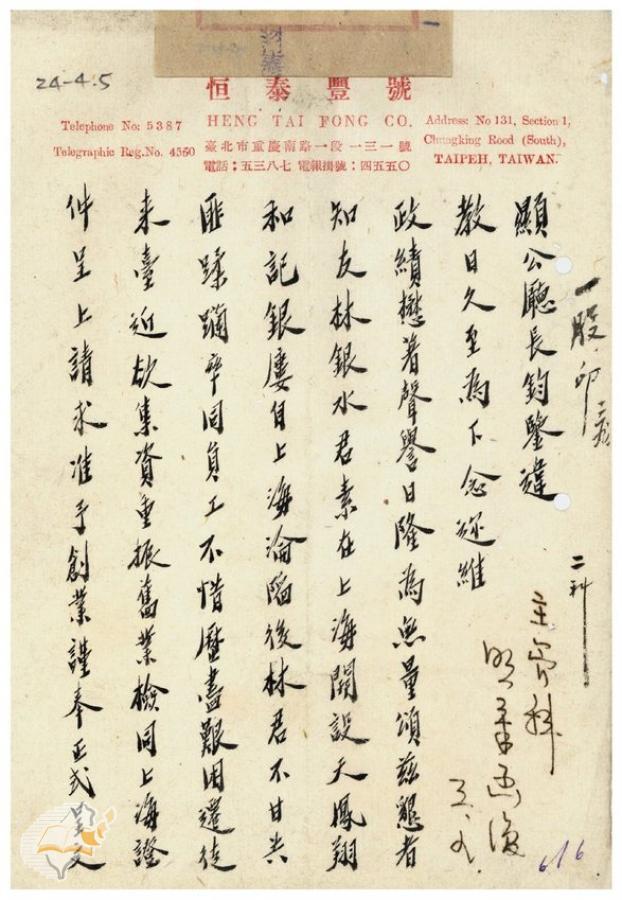 24-4.5
恒泰豐號
HENG TAI FONG CO.
Telephone No: 5387
Telegraphic Reg. No. 4550
臺北市重慶南路一段一三一號
電話：五三八七 電報掛號：四五五〇
Address: No 131, Section 1,
Chungking Rood (South),
TAIPEH, TAIWAN.
一股 印
二科
顯公廳長鈞鑒違
教日久至為下念逖維
政績懋著聲譽日隆為無量頌茲懇者
知友林銀水君素在上海開設天鳳翔
和記銀廔自上海淪陷後林君不甘共
匪蹂躪率同員工不惜歷盡艱困還徒
來臺近欲集資重振舊業檢同上海證
件呈上請求准予創業謹奉正式呈文
6/6